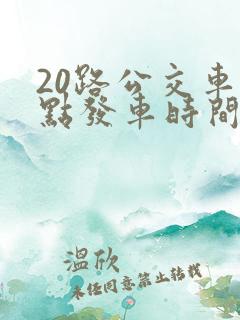 20路公交車
點發車時間
溫欣
未任同意禁止转载